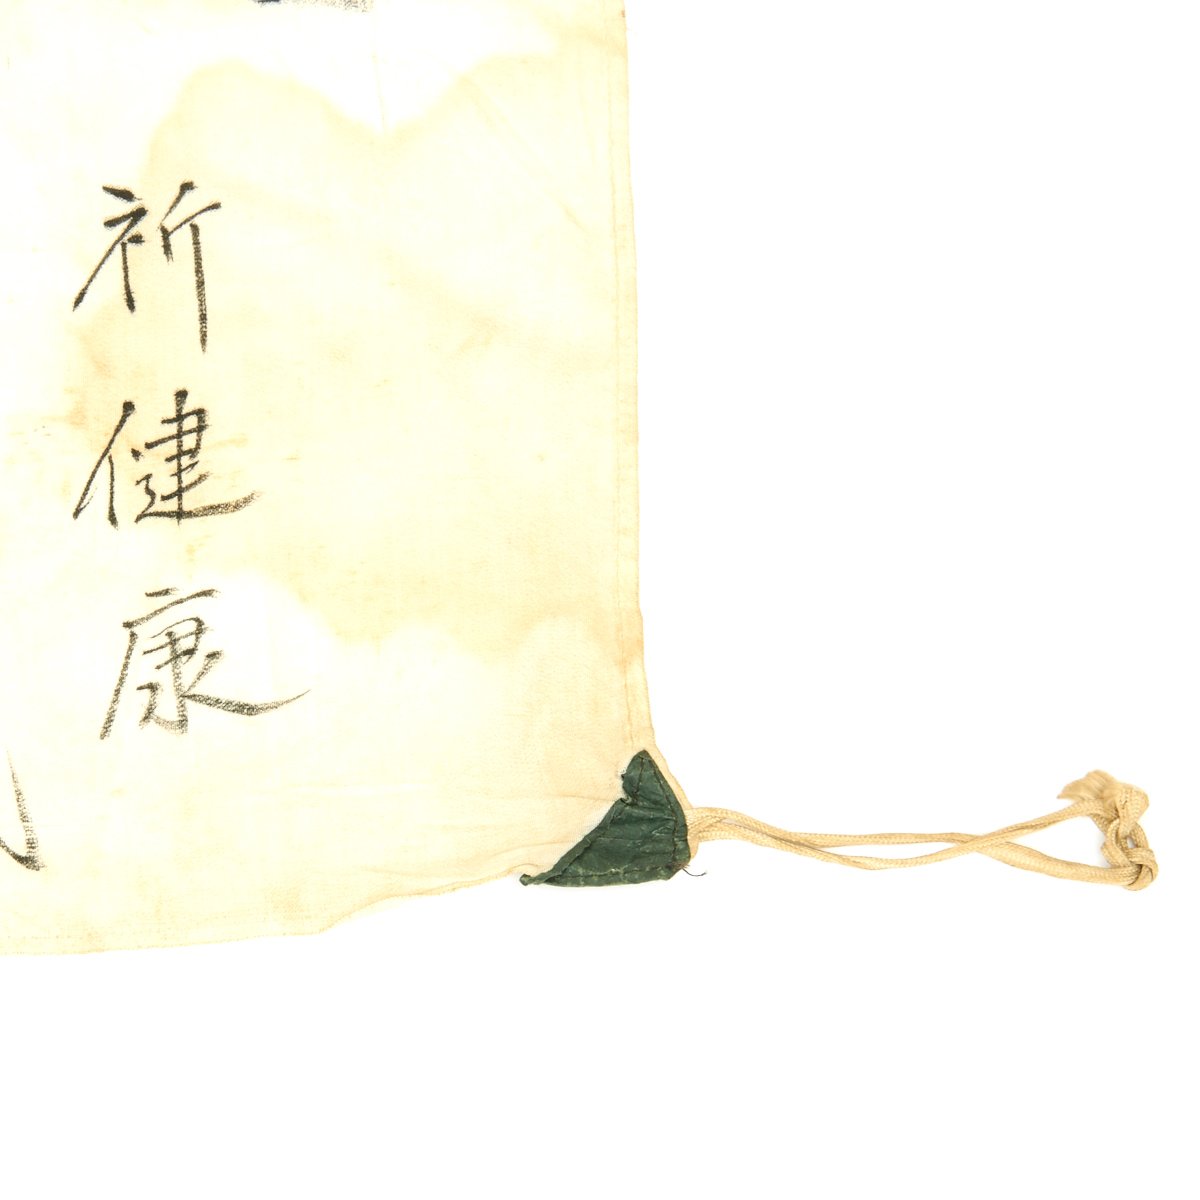 祈健康